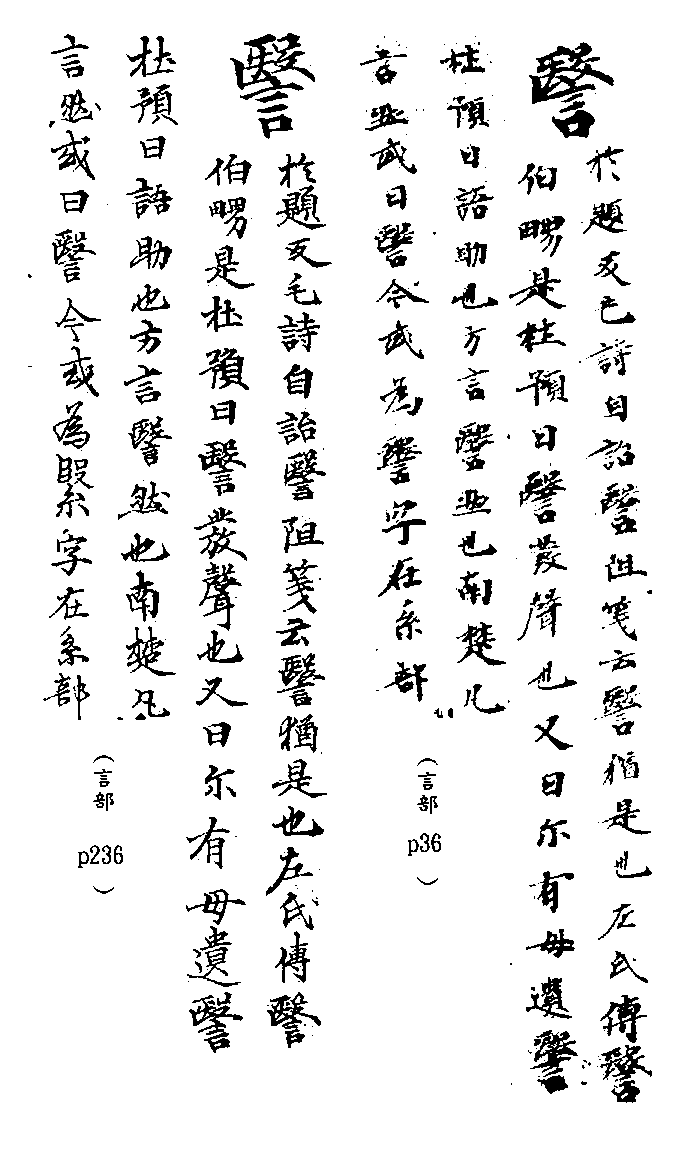 𧫦
於題反毛詩自詒𧫦阻箋云𧫦猶是也左氏傳𧫦
伯舅是杜預曰𧫦發聲也又曰尔有母遺𧫦
杜預曰語助也方言𧫦然也南楚凡
言然或曰𧫦今或為𧫦字在糸部
（言部 p36）
𧫦
於題反毛詩自詒𧫦阻箋云𧫦猶是也左氏傳𧫦
伯舅是杜預曰𧫦發聲也又曰尔有母遺𧫦
杜預曰語助也方言𧫦然也南楚凡
言然或曰𧫦今或為繄字在糸部
（言部 p236）